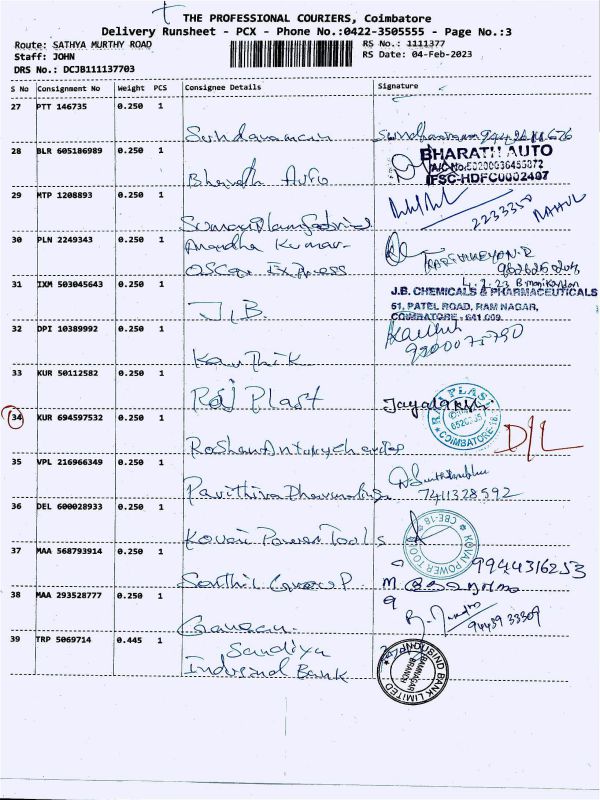 THE PROFESSIONAL COURIERS, Coimbatore
Delivery Runsheet - PCX - Phone No.:0422-3505555 - Page No.:3
Route: SATHYA MURTHY ROAD RS No.: 1111377
Staff: JOHN RS Date: 04-Feb-2023
DRS No.: DCJB111137703
S No Consignment No Weight PCS Consignee Details Signature
27 PTT 146735 0.250 1
Sundaraman
28 BLR 605186989 0.250 1
BHARATH AUTO
A/C No:50200036455872
IFSC-HDFC0002407
Bharath Auto
29 MTP 1208893 0.250 1
2233350 RAHUL
30 PLN 2249343 0.250 1
Anandha Kumar
Oscar Express
KARTHIKEYAN.R
31 IXM 503045643 0.250 1
4.2.23 B.manikandan
J.B. CHEMICALS & PHARMACEUTICALS
51, PATEL ROAD, RAM NAGAR,
COIMBATORE - 641 009.
J.B.
32 DPI 10389992 0.250 1
Karthik
Karthik
33 KUR 50112582 0.250 1
Raj Plast
Jayalakshmi
34 KUR 694597532 0.250 1
RAJ PLAST
COIMBATORE-18
D/L
Roshan Antony
35 VPL 216966349 0.250 1
7411328592
36 DEL 600028933 0.250 1
Kovai Power Tools
KOVAI POWER TOOLS
CBE-18
37 MAA 568793914 0.250 1
9944316253
Senthil
38 MAA 293528777 0.250 1
Ganesan
39 TRP 5069714 0.445 1
Sandiya
Indusind Bank
INDUSIND BANK LIMITED
RAMNAGAR
BRANCH